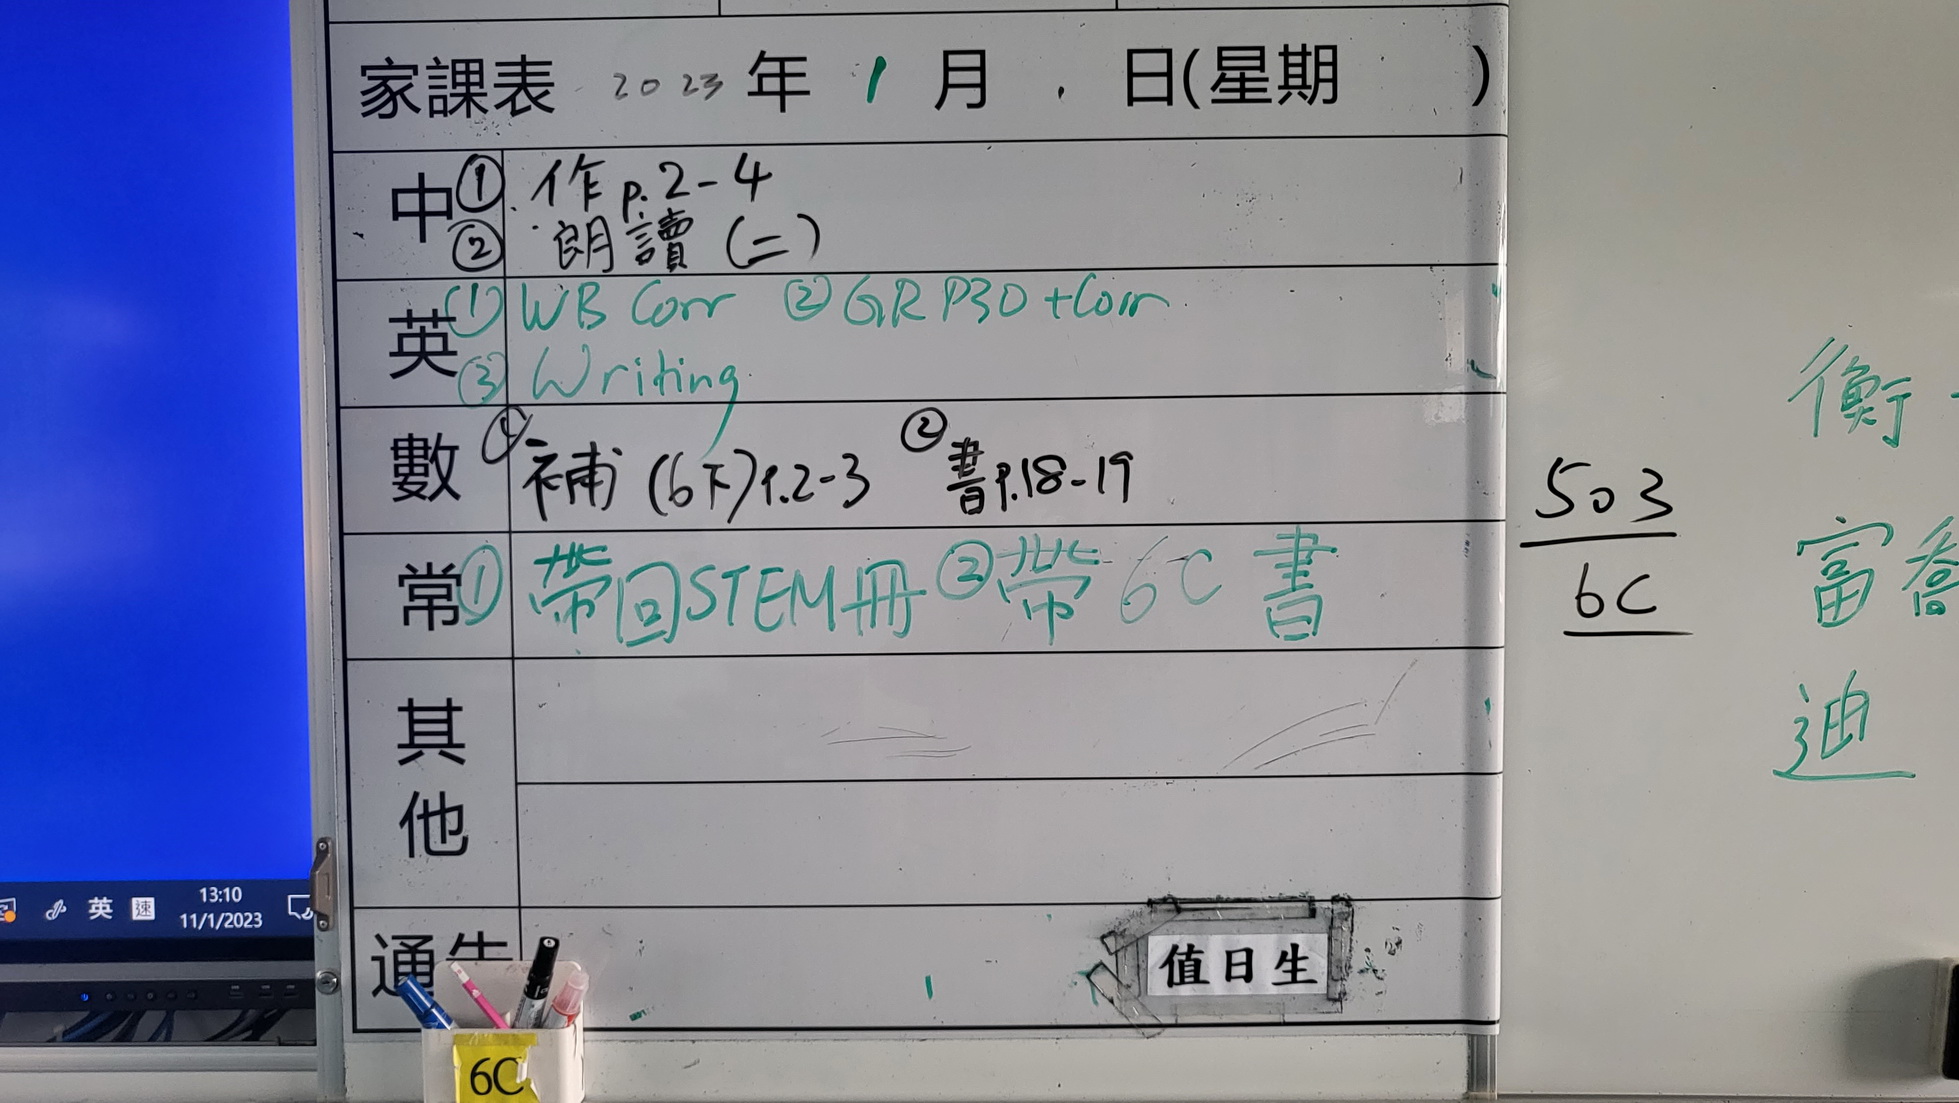 家課表 2023 年 1 月 日(星期 )
中 ① 作 p.2-4
② 朗讀 (二)
英 (1) WB Corr ② GR P30 + Corr
③ Writing
數 ① 補 (6下) P.2-3 ② 書 P.18-19
常 ① 帶回STEM冊 ② 帶 6C 書
其他
通告
值日生
6C
503
6C
衡
富 喬
迪
英 速 13:10
11/1/2023